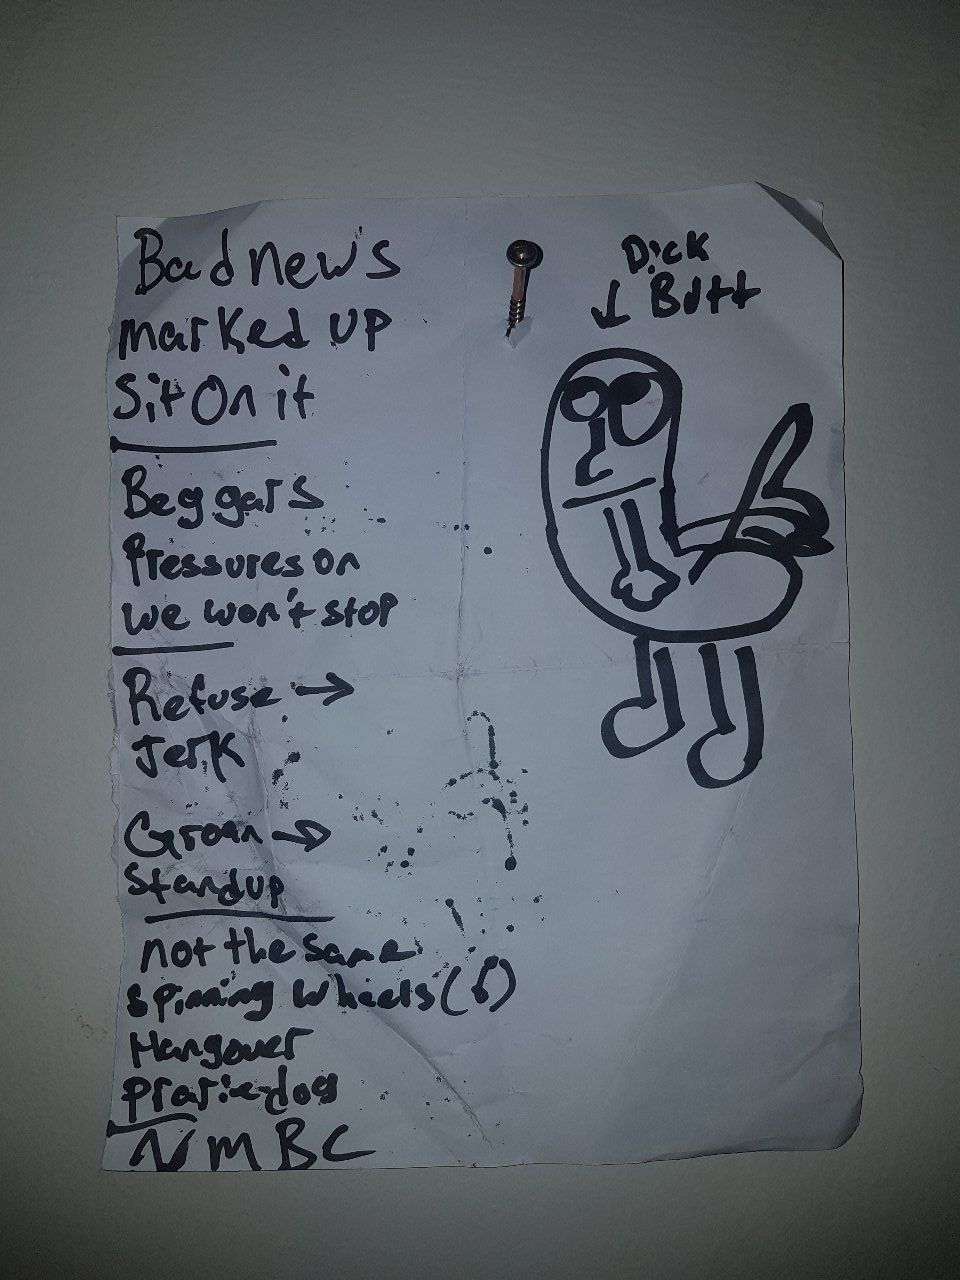 Bad news
marked up
Sit On it
Beggars
Pressures on
we won't stop
Refuse →
Jerk
Groan →
Standup
not the same
spinning wheels (6)
Hangover
Prarie-dog
NMBC
Dick
↓ Butt